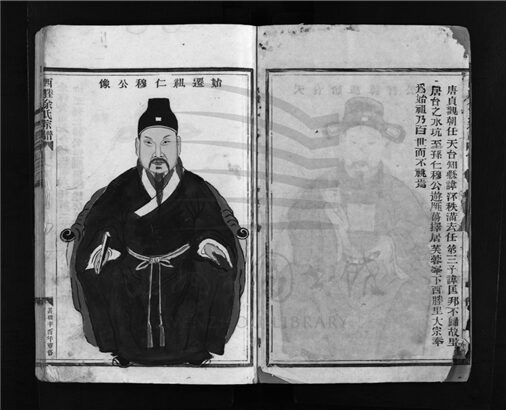 唐貞觀朝任天台知縣諱 秩滿去任第三子諱匡邦不歸故里
居台之水坑至孫仁穆公遊雁蕩擇居芙蓉峯下西塍里大宗奉
爲始祖乃百世而不祧焉
始遷祖仁穆公像
西塍徐氏宗譜
LIBRARY